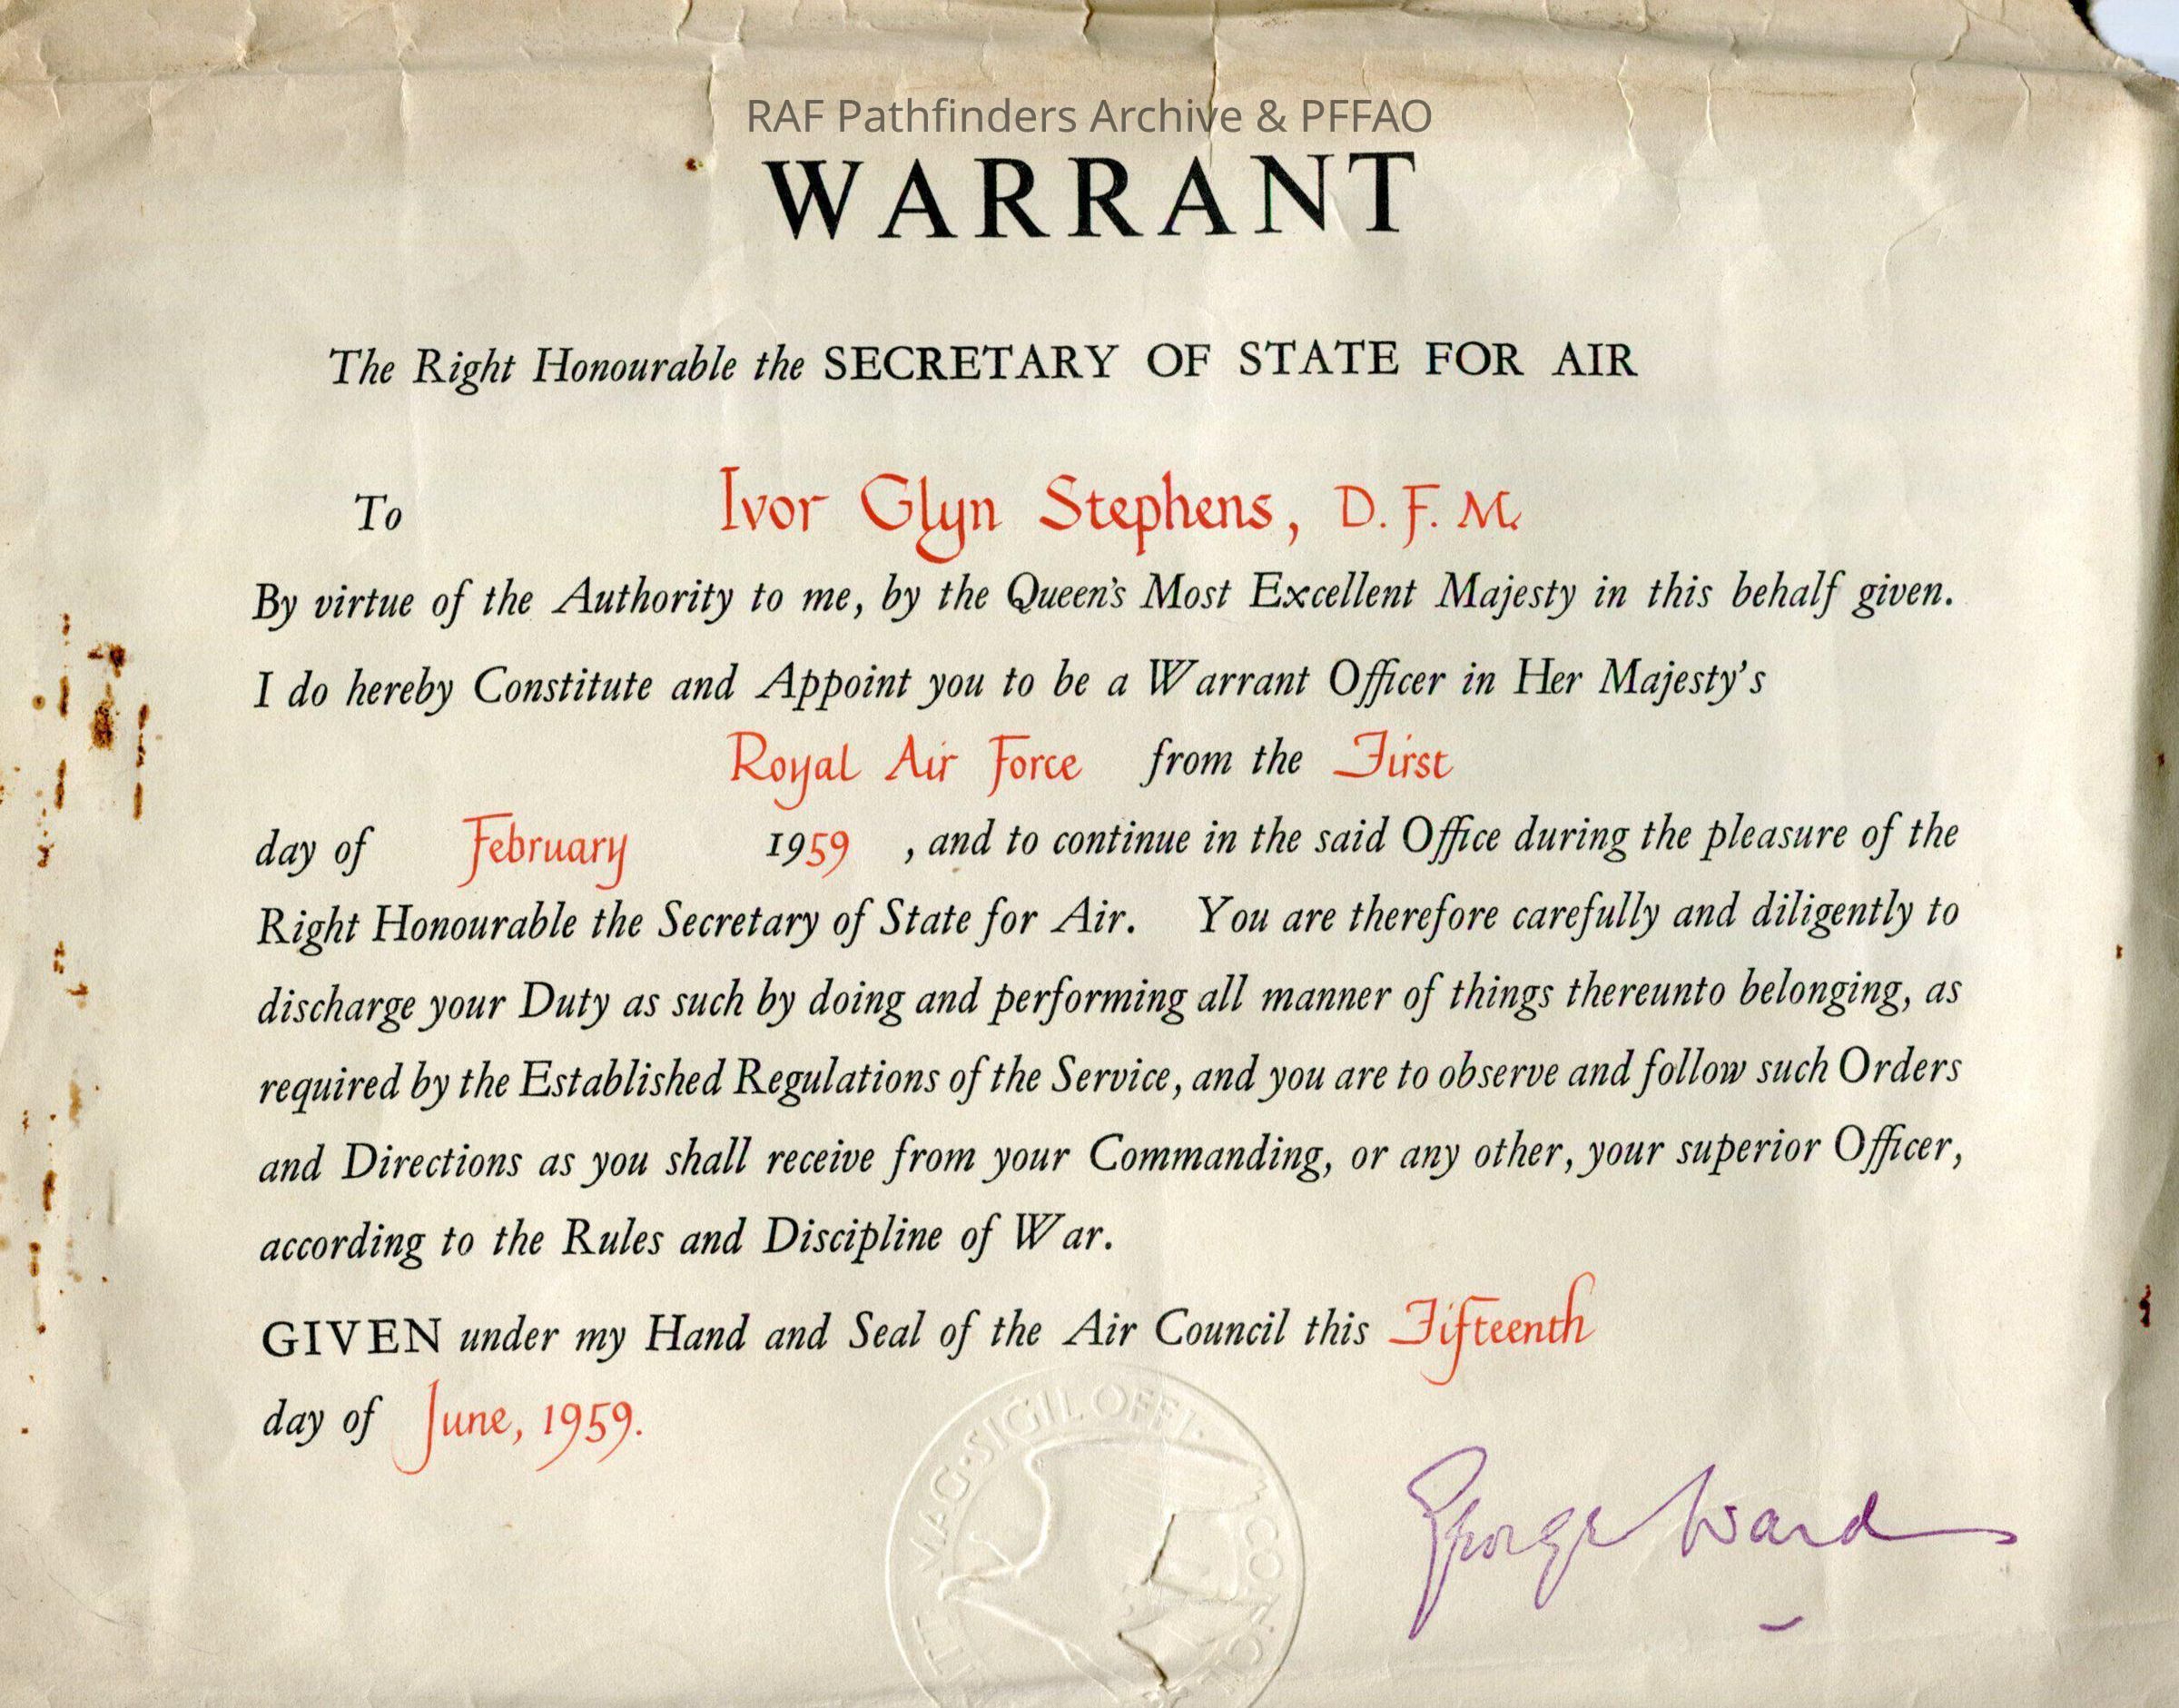 RAF Pathfinders Archive & PFFAO
WARRANT
The Right Honourable the SECRETARY OF STATE FOR AIR
To Ivor Glyn Stephens, D.F.M.
By virtue of the Authority to me, by the Queen's Most Excellent Majesty in this behalf given.
I do hereby Constitute and Appoint you to be a Warrant Officer in Her Majesty's
Royal Air Force from the First
day of February 1959 , and to continue in the said Office during the pleasure of the
Right Honourable the Secretary of State for Air. You are therefore carefully and diligently to
discharge your Duty as such by doing and performing all manner of things thereunto belonging, as
required by the Established Regulations of the Service, and you are to observe and follow such Orders
and Directions as you shall receive from your Commanding, or any other, your superior Officer,
according to the Rules and Discipline of War.
GIVEN under my Hand and Seal of the Air Council this Fifteenth
day of June, 1959.
MAG·SIGIL OFFI
George Ward